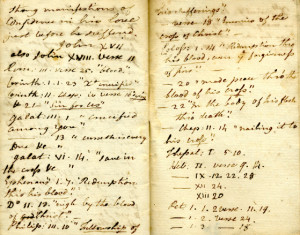 strong manifestations of
confidence in his love
just before he suffered.
John XVII
also John XVIII. verse 11
Rom. III. verse 25. blood.
Corinth. 1. 23 "X crucified"
Corinth. 11. chap. v. verse 21
"sin for us"
Galat. III. 1 "crucified
among you"
13 "
Galat. VI. 14. "save in
the cross &c
Ephesians 1. 7. Redemption
thro his blood"
Do II. 13. "nigh by the blood
Philip. III. 10 "fellowship of
his sufferings"
verse 18 "Enemies of the
cross of Christ"
Coloss. 1. 14 "Redemption thro
his blood, even forgiveness
of sins."
20 "made peace thro the
blood of his cross"
22 "In the body of his flesh
thro death"
Chap. 11. 14 "nailing it to
his cross"
Thessal. I. 5. 10.
Heb. II. verse 9. 14.
IX. 12. 22. 28
XII 24.
XIII 20
Pet. 1. 1. 2 verse. 11. 19.
1. 2. verse 24.
1. 3 18